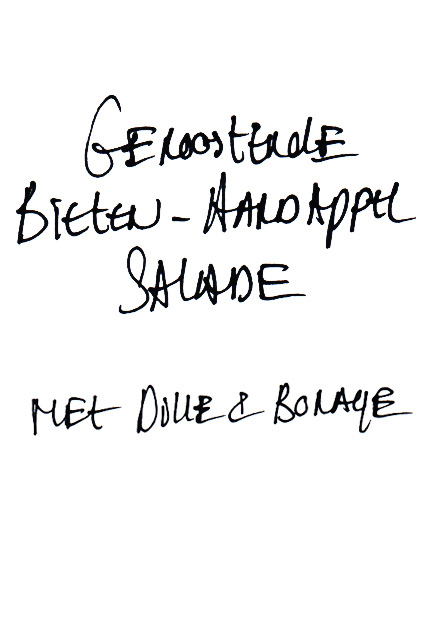 GEROOSTERDE
BIETEN - AARDAPPEL
SALADE
MET DILLE & BORAGE